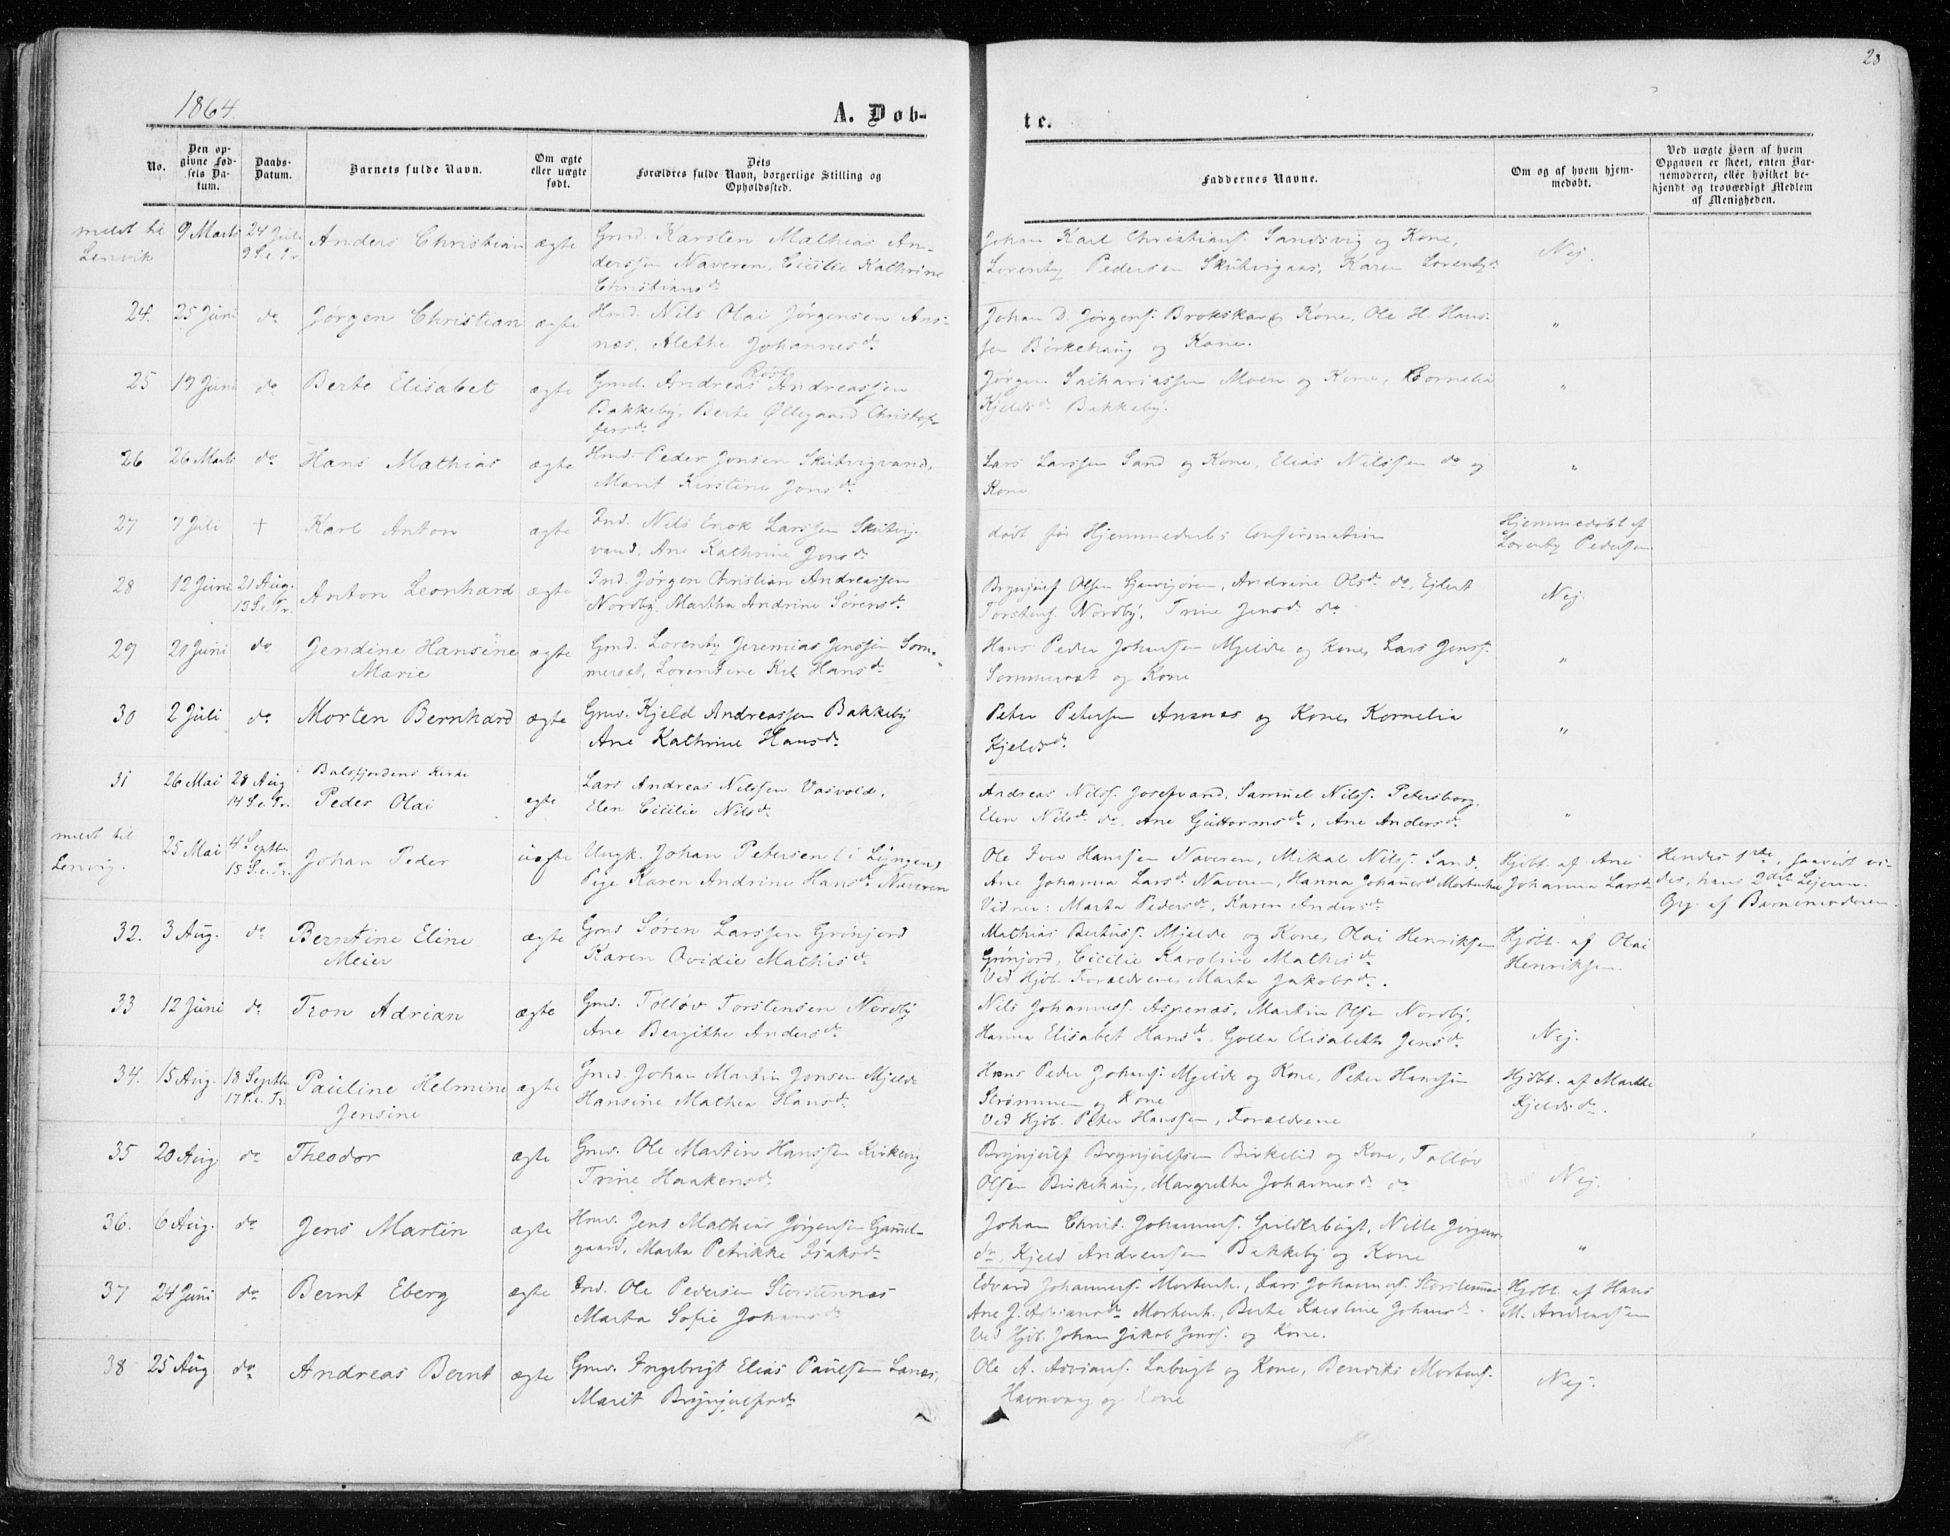 28
1864.
A. Døb-
te.
No.
Den op-
givne Fød-
sels Da-
tum.
Daabs-
Datum.
Barnets fulde Navn.
Om ægte
eller uægte
født.
Dets
Forældres fulde Navn, borgerlige Stilling og
Opholdssted.
Faddernes Navne.
Om og af hvem hjem-
medøbt.
Ved uægte Børn af hvem
Opgaven er skeet, enten Bar-
nemoderen, eller hvilket be-
kjendt og troværdigt Medlem
af Menigheden.
meldt til
Lenvik
9 Marts
24 Juli
9 S. e. Tr.
Anders Christian
ægte
Gmd. Karsten Mathias An-
derssen Naveren, Cicilie Kathrine
Christiansd.
Johan Karl Christians. Sandsvig og Kone,
Lorentz Pedersen Skutvigaas, Karen Lorentzd.
Nej.
24.
25 Juni
do
Jørgen Christian
ægte
Hmd. Nils Olai Jørgensen Ans-
næs, Alethe Johannesd.
Johan D. Jørgens. Brokskar og Kone, Ole H. Hans-
sen Birkehaug og Kone.
"
25
19 Juni
do
Berte Elisabet
ægte
Gmd. Andreas Røst Andreassen
Bakkeby, Berte Øllegaard Christof-
fersd.
Jørgen Sachariassen Moen og Kone, Cornelia
Kjeldsd. Bakkeby.
"
26
26 Marts
do
Hans Mathias
ægte
Hmd. Peder Jonsen Skutvigvand,
Marit Kirstine Jonsd.
Lars Larssen Sand og Kone, Elias Nilssen do og
Kone
"
27
7 Juli
+
Karl Anton
ægte
Ind. Nils Enok Larssen Skutvig-
vand, Ane Kathrine Jonsd.
dødt før Hjemmedaabs Confirmation
Hjemmedøbt af
Lorentz Pedersen
28
12 Juni
21 Aug.
13 S. e. Tr.
Anton Leonhard
ægte
Ind. Jørgen Christian Andreassen
Nordby, Martha Andrine Sørensd.
Brynjulf Olsen, Andrine Olsd. do, Ejlert
Torstens. Nordby, Trine Jensd. do
Nej.
29
20 Juni
do
Jendine Hansine
Marie
ægte
Gmd. Lorentz Jeremias Jenssen Som-
merset, Lorentine Hansd.
Hans Peder Johansen Mjelde og Kone, Lars Jens.
Sommerset og Kone
"
30
2 Juli
do
Morten Bernhard
ægte
Gmd. Kjeld Andreassen Bakkeby
Ane Kathrine Hansd.
Peter Petersen Ansnæs og Kone, Kornelia
Kjeldsd.
"
31
26 Mai
28 Aug
14 S. e. Tr.
Balsfjordens Kirke
Peder Olai
ægte
Lars Andreas Nilssen Vasvold,
Elen Cicilie Nilsd.
Andreas Nilss. Josefvand, Samuel Nilss. Petersborg,
Elen Nilsd. do, Ane Guttormsd., Ane Andersd.
"
meldt til
Lenvig.
25 Mai
4 Septbr
15 S. e. Tr.
Johan Peder
uægte
Ungk. Johan Petersen (i Lyngen)
Pige Karen Andrine Hansd. Naveren
Ole Iver Hanssen Naveren, Mikal Nilss. Sand,
Ane Johanna Larsd. Naveren, Hanna Johannesd. Mortenhals
Vidner: Marta Pedersd., Karen Andersd.
Hjdbt. af Ane
Johanna Larsd.
Hendes 1ste, saavidt vi-
des, hans 2det Lejerm.
Opg. af Barnemoderen.
32.
3 Aug.
do
Berntine Eline
Meier
ægte
Gmd Søren Larssen Grønjord
Karen Ovidie Mathisd.
Mathias Bertheuss. Mjelde og Kone, Olai Henriksen
Grønjord, Cicilie Karoline Mathisd.
Ved Hjdb. Forældrene, Marta Jakobsd.
Hjdbt. af Olai
Henriksen.
33
12 Juni
do
Tron Adrian
ægte
Gmd. Tolløv Torstensen Nordby
Ane Bergithe Andersd.
Nils Johanness. Aspenæs, Martin Olsen Nordby,
Hanna Elisabet Hansd. Golla Elisabeth Jensd.
Nej.
34.
15 Aug.
18 Septbr
17 S. e. Tr.
Pauline Helmine
Jensine
ægte
Gmd. Johan Martin Jonsen Mjelde
Hansine Mathea Hansd.
Hans Peder Johans. Mjelde og Kone, Peter Hanssen
Strømmen og Kone
Ved Hjdb. Peter Hanssen, Forældrene
Hjdbt. af Marthe
Kjeldsd.
35
20 Aug
do
Theodor
ægte
Gmd. Ole Martin Hanssen Kirkeng
Trine Haakensd.
Brynjulf Brynjulfsen Birkelid og Kone, Tolløv
Olsen Birkehaug, Margrethe Johannesd. do
Nej.
36.
6 Aug.
do
Jens Martin
ægte
Hmd. Jens Mathias Jørgensen Gamel-
gaard, Marta Petrikke Isaksd.
Johan Christ. Johanness. Spilderbugt, Nille Jørgensd.
do, Kjeld Andreassen Bakkeby og Kone
"
37
24 Juni
do
Bernt Eberg
ægte
Ind. Ole Pedersen Storstennæs
Marta Sofie Johansd.
Edvard Johanness. Mortenh., Lars Johanness. Storstennæs
Ane J. Adriansd. Mortenh., Berte Karoline Johansd.
Ved Hjdb. Johan Jakob Jenss. og Kone.
Hjdbt. af Hans
M. Andreassen
38
25 Aug
do
Andreas Bernt
ægte
Gmd. Ingebrigt Elias Paulsen Lanæs,
Marit Brynjulfsd.
Ole A. Adrians. Labugt og Kone, Bendiks Mortens.
Havnvaag og Kone
Nej.